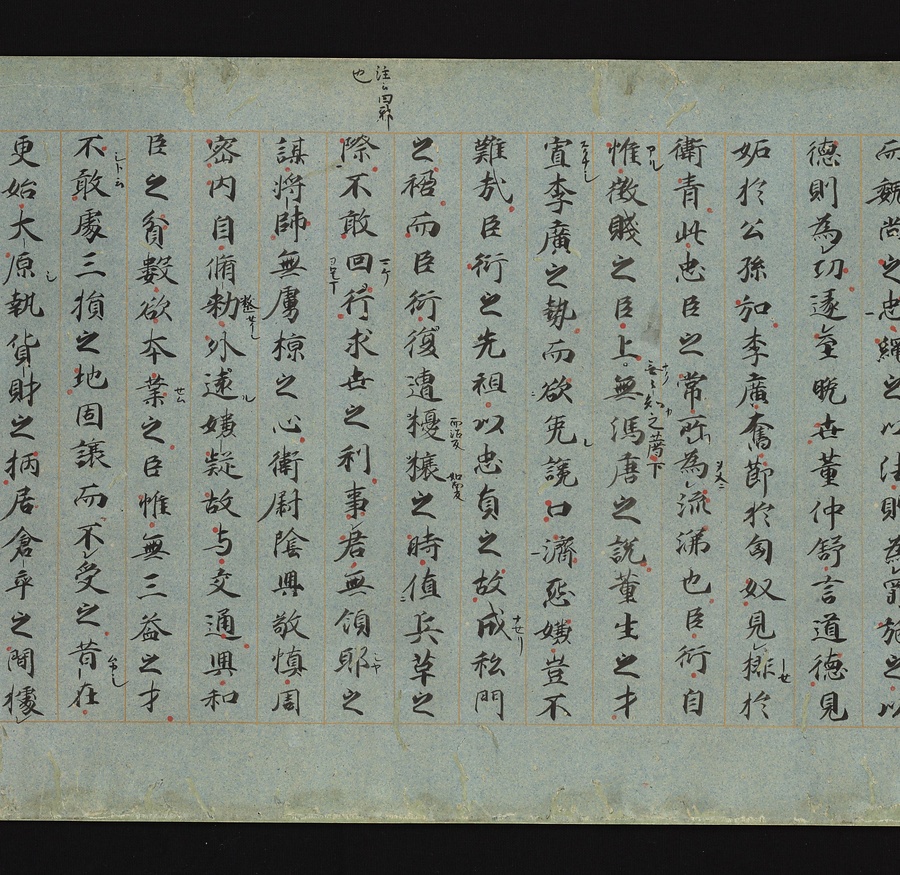 而魏尚之忠繩之以法則為罪施之以
德則為功逮至晚世董仲舒言道德見
妬於公孫弘李廣奮節於匈奴見排於
衛青此忠臣之常所為流涕也臣衍自
惟微賤之臣上無馮唐之說董生之才
寡李廣之勢而欲免讒口濟怨嫌豈不
難哉臣衍之先祖以忠貞之故成私門
之禍而臣衍復遭擾攘之時值兵革之
注云回邪也
際不敢回行求世之利事君無傾邪之
謀將帥無虜掠之心衛尉陰興敬慎周
密內自脩勑外遠嫌疑故与交通興知
臣之貧數欲本業之臣惟無三益之才
不敢處三損之地固讓而不受之昔在
更始大原執貨財之柄居倉卒之間據